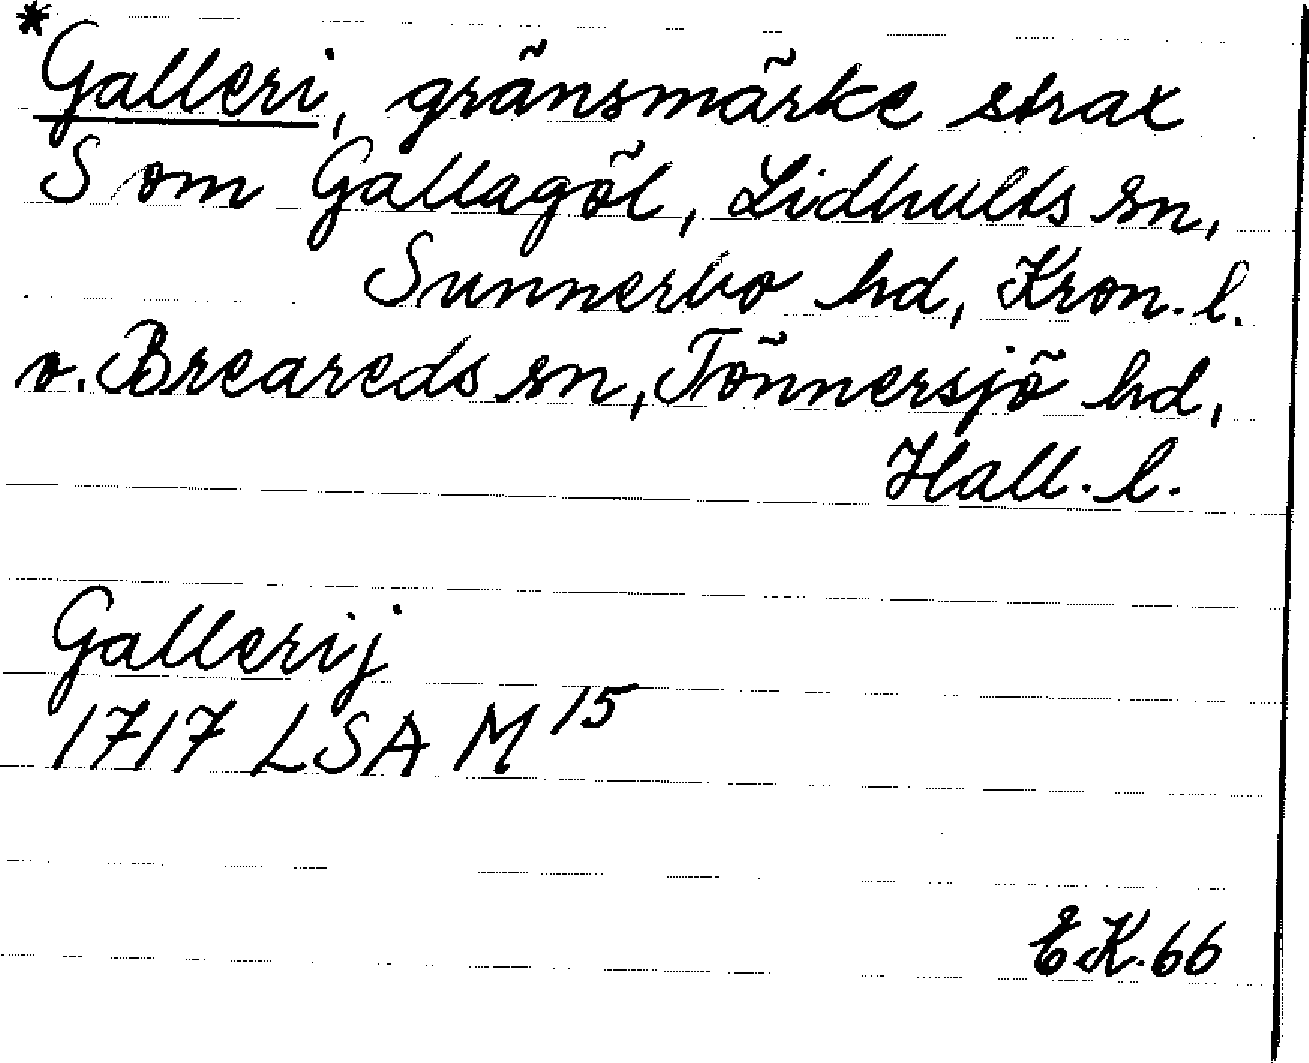 *Galleri, gränsmärke strax
S om Gallagöl, Lidhults sn,
Sunnerbo hd, Kron. l.
o. Breareds sn, Tönnersjö hd,
Hall. l.
Gallerij
1717 LSA M 15
E.K. 66